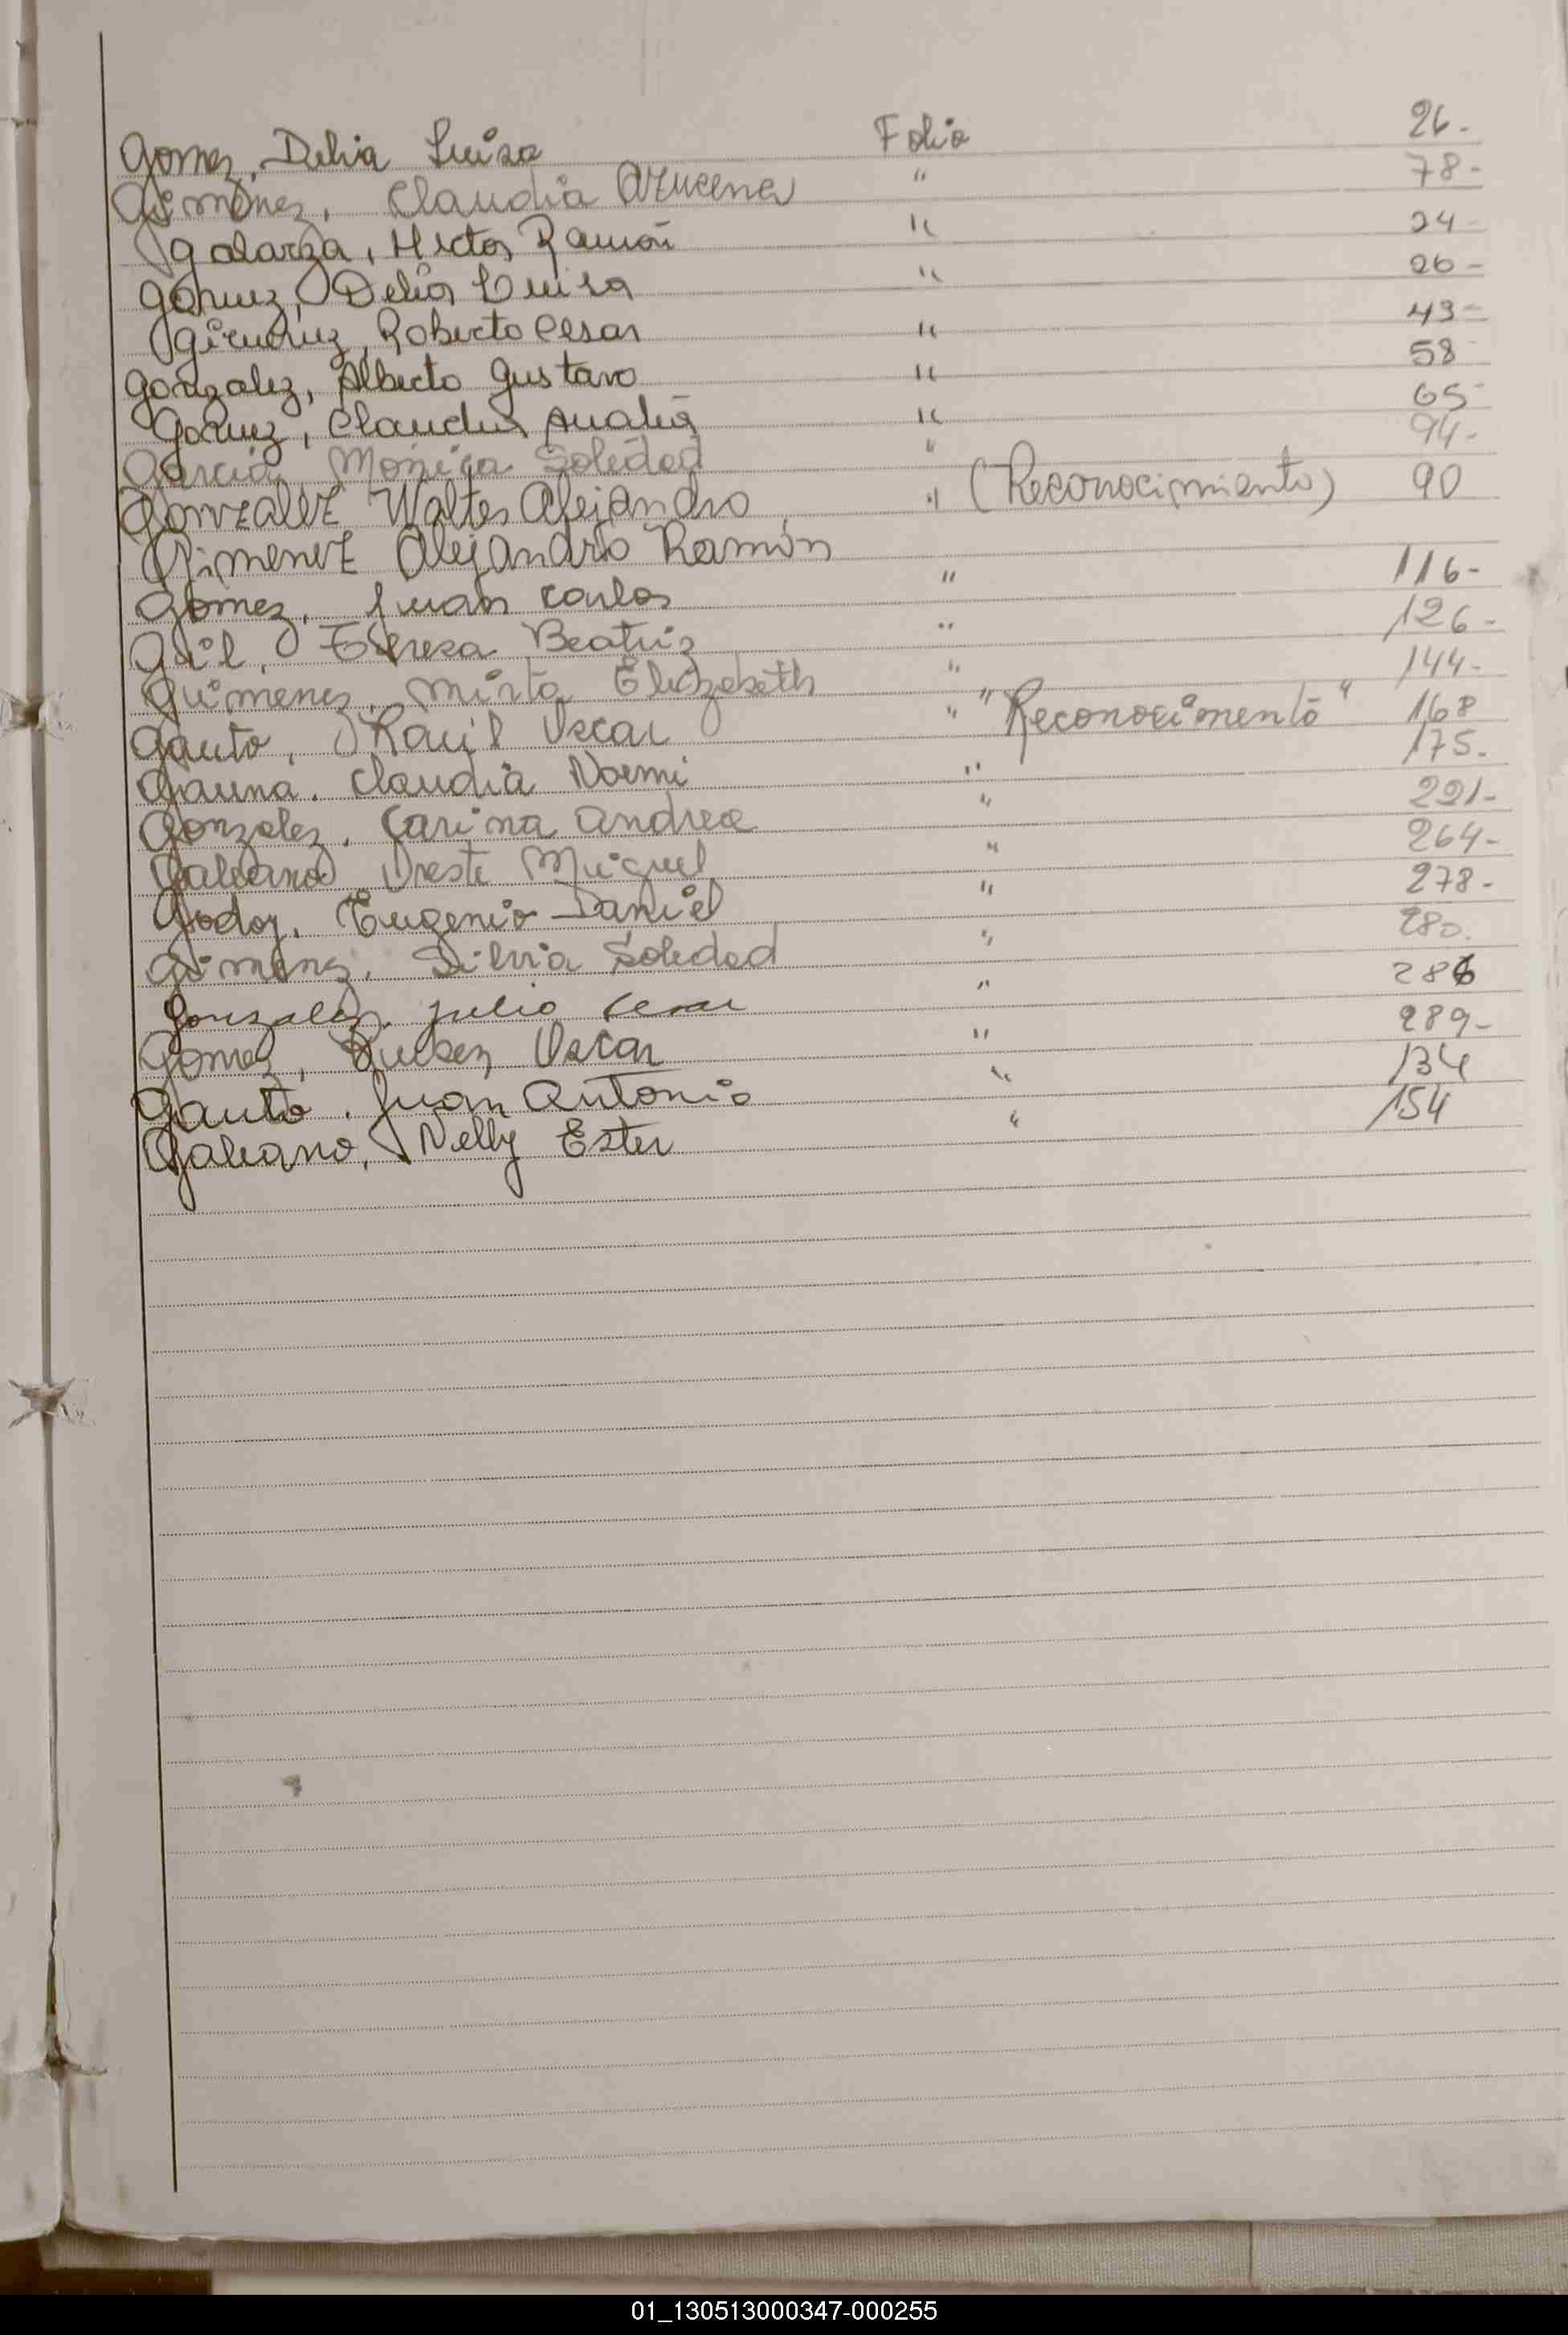 Gomez, Delia Luisa Folio 26-
Gimenez, Claudia Azucena " 78-
Galarza, Hector Ramón " 24-
Gómez, Delia Luisa " 26-
Gimenez, Roberto Cesar " 43-
Gonzalez, Alberto Gustavo " 58-
Gomez, Claudia Analia " 65-
Garcia, Monica Soledad " 94-
Gonzalez Walter Alejandro, " (Reconocimiento) 90
Gimenez Alejandro Ramón
Gomez, Juan Carlos " 116-
Gil, Teresa Beatriz " 126-
Gimenez, Mirta Elizabeth " 144-
Gauto, Raúl Oscar " "Reconocimento" 168
Gauna. Claudia Noemi " 175.
Gonzalez. Carina Andrea " 221-
Galeano Oreste Miguel " 264-
Godoy. Eugenio Daniel " 278-
Gimenez. Silvia Soledad " 280.
Gonzalez. Julio Cesar " 286
Gomez, Ruben Oscar " 289-
Gauto. Juan Antonio " 134
Galeano, Nelly Ester " 154
01_130513000347-000255